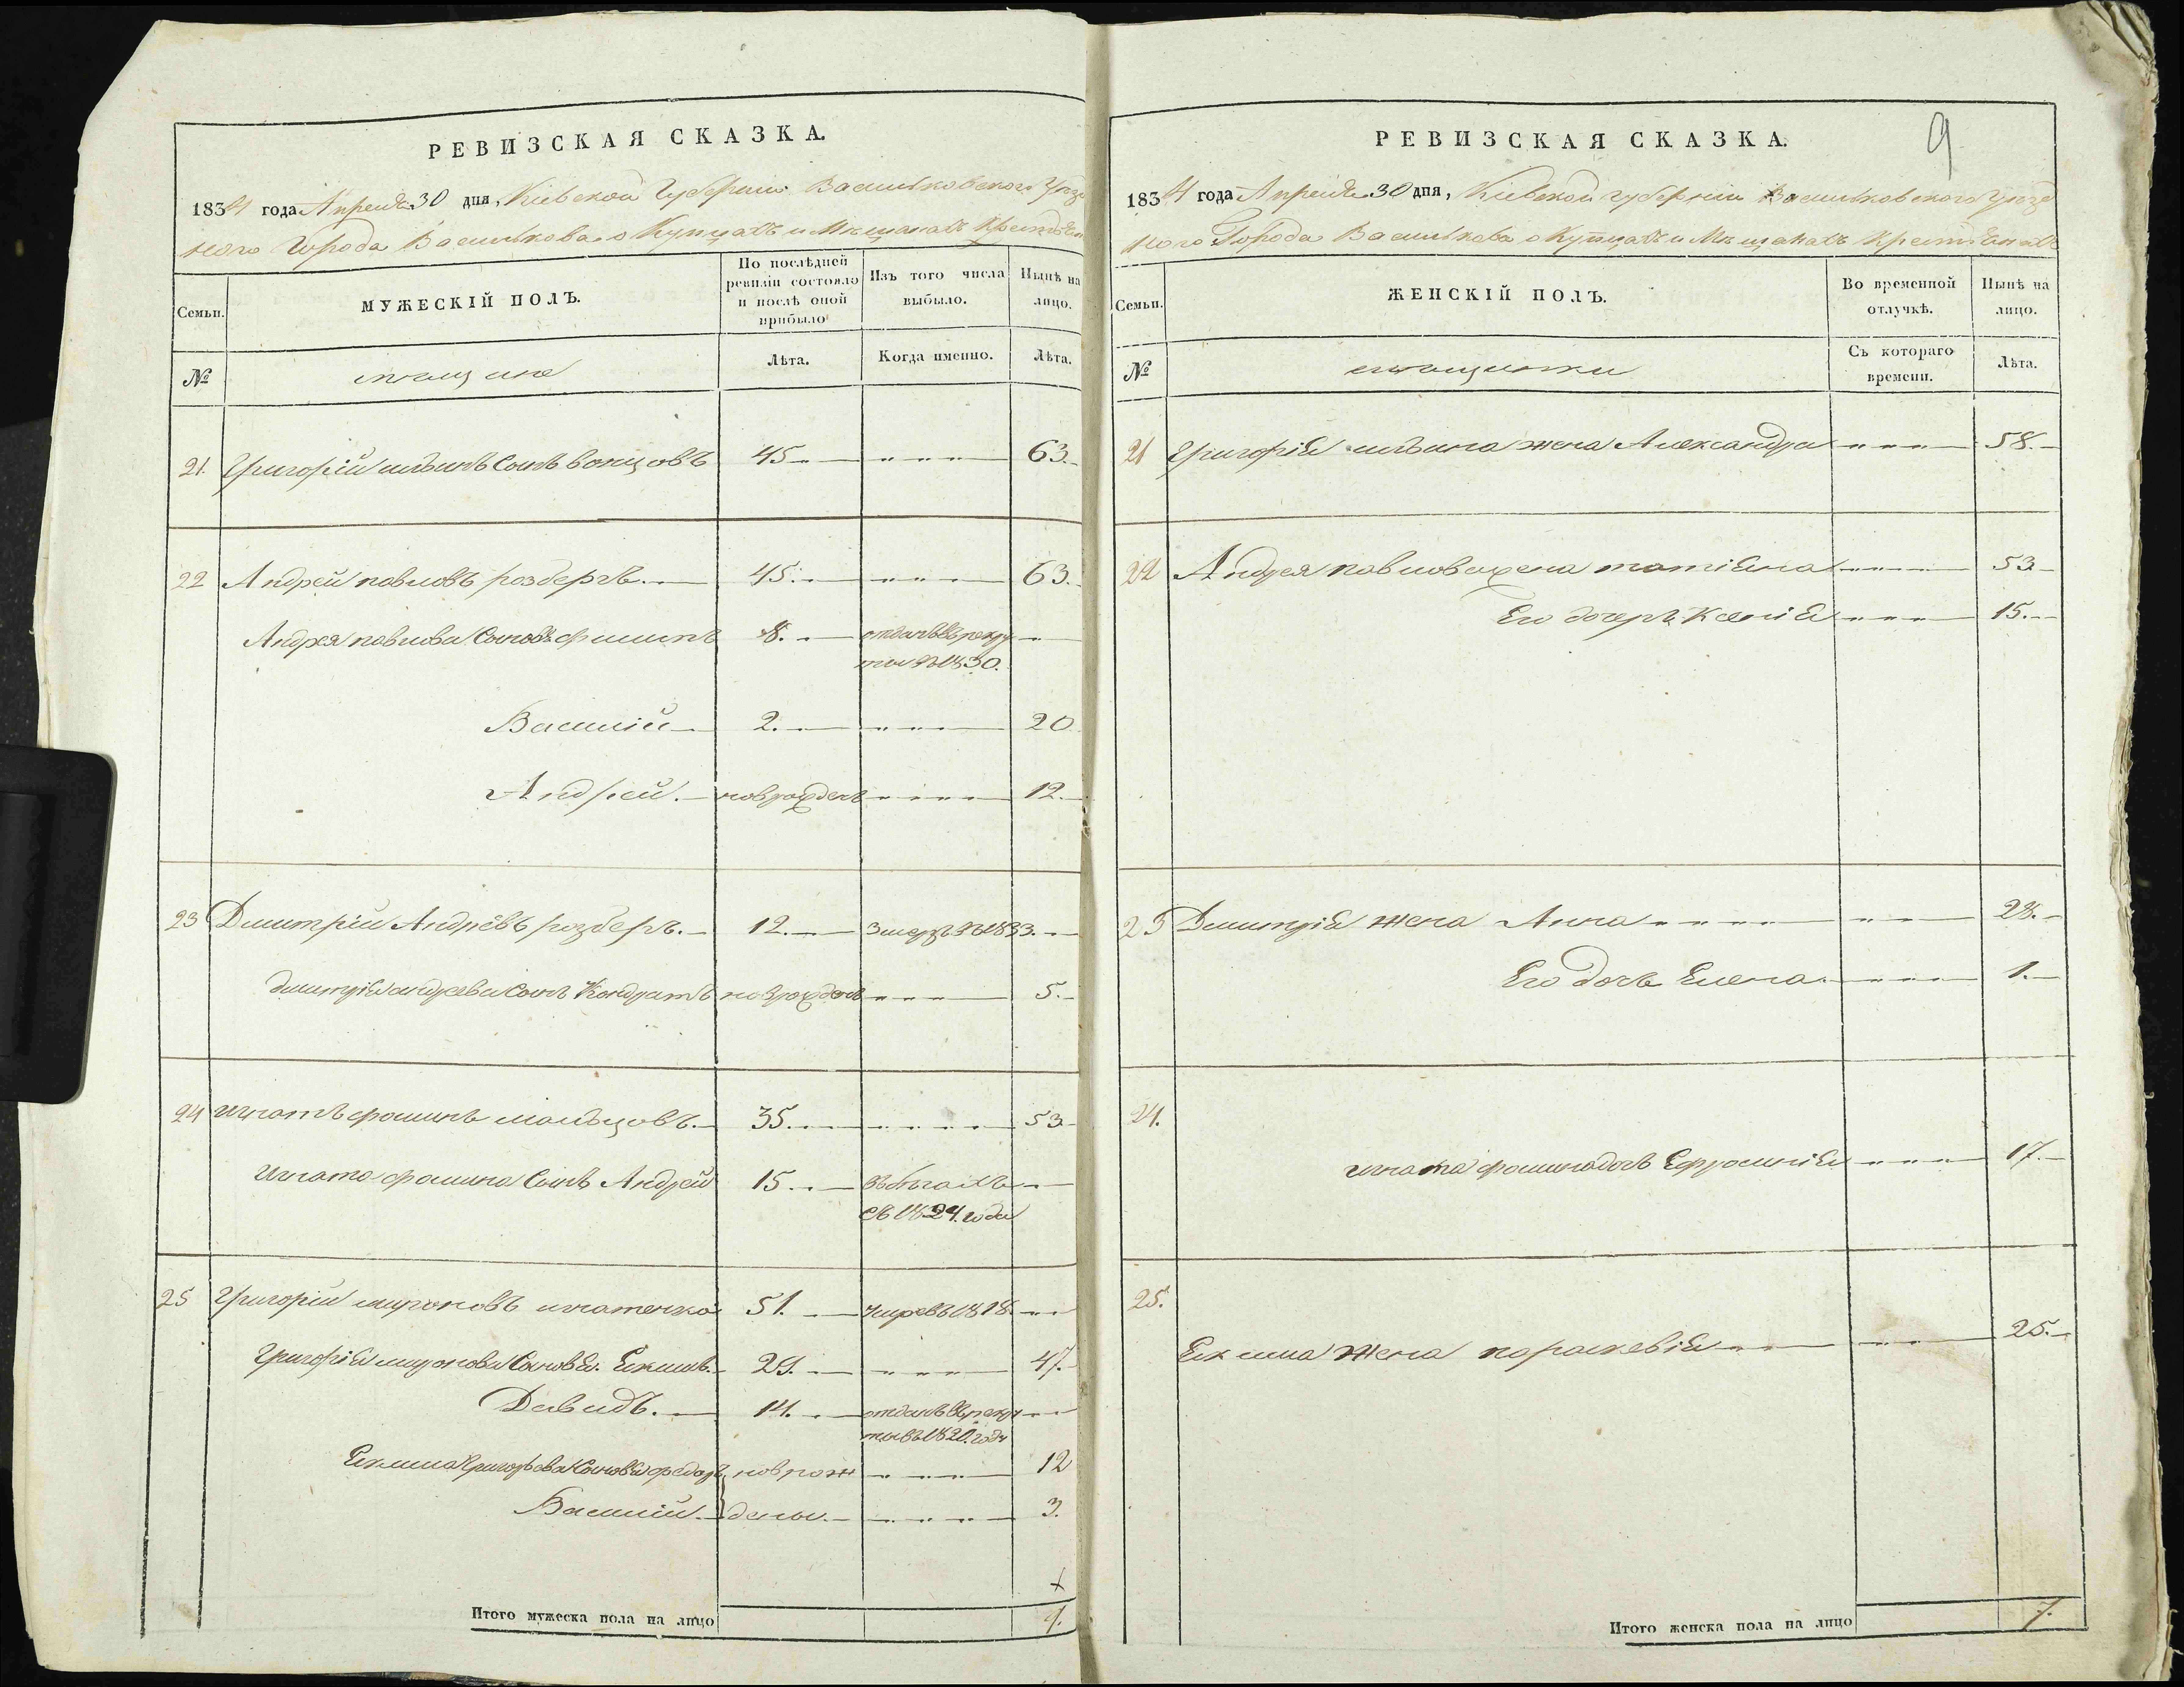 РЕВИЗСКАЯ СКАЗКА.
1834 года Апреля 30 дня, Кіевской Губерніи Васильковского Уезд
ного Города Василькова о Купцахъ и Мещанахъ Християнахъ
Семьи.
МУЖЕСКІЙ ПОЛЪ.
По послѣдней ревизіи состояло и послѣ оной прибыло
Изъ того числа выбыло.
Нынѣ на лицо.
№
мещане
Лѣта.
Когда именно.
Лѣта.
21. Григорій Сынъ 45 63.
22 Андрей павловъ розберъ. 45. 63.
Андрея павлова Сыновя филипъ 8. отданъ въ рекру
ты въ 1830.
Василій 2. 20
Андрей. новрожденъ 12.
23 Дмитрій Андреевъ розберъ. 12. Змеръ въ 1833.
Дмитрія андреева Сынъ Кондратъ новрожденъ 5.
24 игнатъ фоминъ 35. 53
игната фомина Сынъ Андрей 15. въ бегахъ
съ 1824. года
25 Григорий мироновъ игнатенко 51. умре въ 1818.
Григорія миронова Сыновя. Екимъ. 29. 47.
Давидъ. 14. отданъ въ рекру
ты въ 1820. году
Екима Григорьева Сыновя федоръ новрож 12
Василий. дены. 3.
Итого мужеска пола на лицо 9.
9
РЕВИЗСКАЯ СКАЗКА.
1834 года Апреля 30 дня, Кіевской Губерніи Васильковского Уезд
ного Города Василькова о Купцахъ и Мещанахъ Християнахъ
Семьи.
ЖЕНСКІЙ ПОЛЪ.
Во временной отлучкѣ.
Нынѣ на лицо.
№
мещанки
Съ котораго времени.
Лѣта.
21 Григорія жена Александра 58.
22 Андрея павлова жена татіяна 53
Его дочеръ Ксенія 15.
23 Дмитрія жена Анна 28.
Его дочь Елена. 1.
24.
игната фомина дочь Ефросинія 17.
25.
Екима жена параскевія 25.
Итого женска пола на лицо 7.